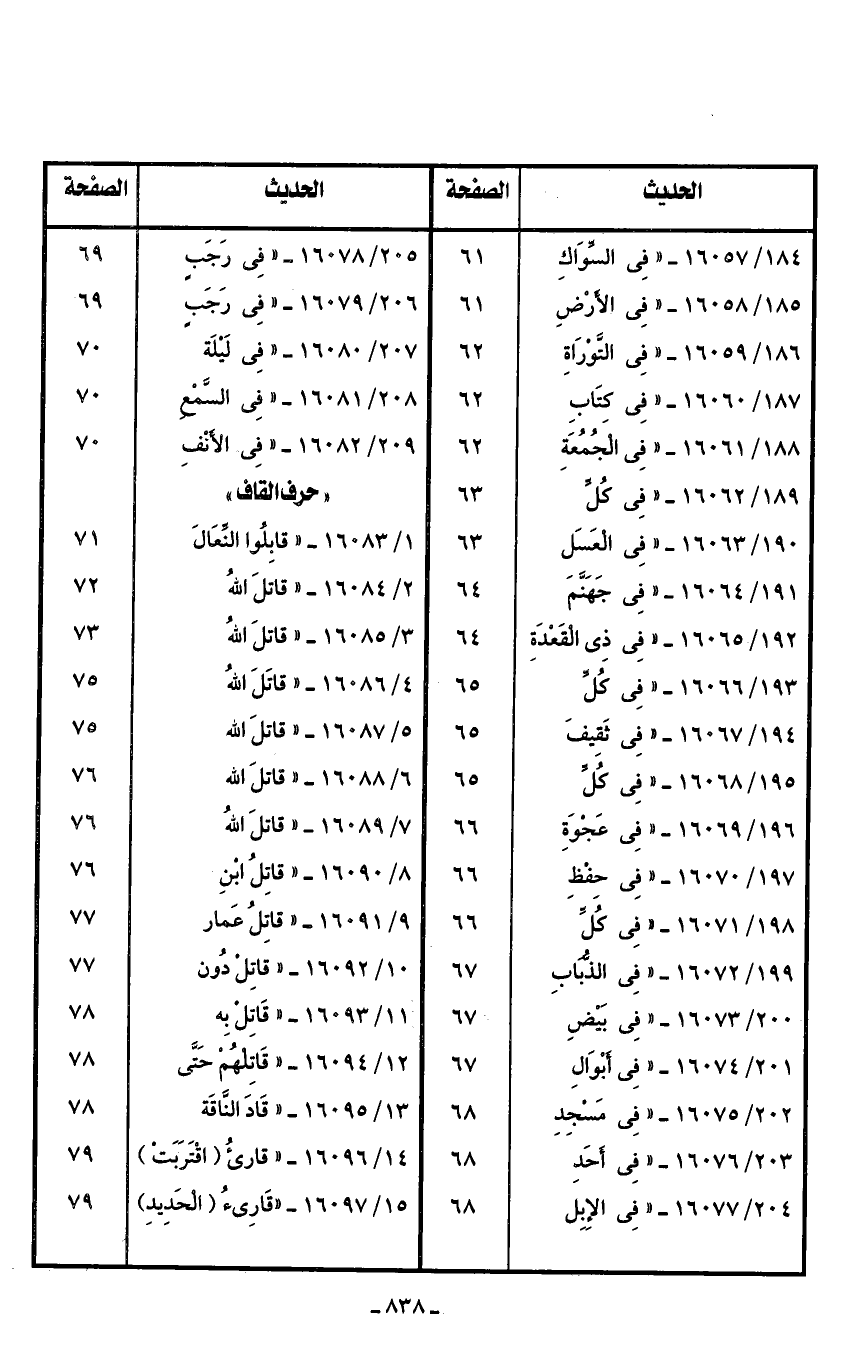 الحديث الصفحة
١٨٤/ ١٦٠٥٧ ـ « فِى السِّوَاكِ ٦١
١٨٥/ ١٦٠٥٨ ـ « فِى الأَرْضِ ٦١
١٨٦/ ١٦٠٥٩ ـ « فِى التَّوْرَاةِ ٦٢
١٨٧/ ١٦٠٦٠ ـ « فِى كِتَابِ ٦٢
١٨٨/ ١٦٠٦١ ـ « فِى الْجُمُعَةِ ٦٢
١٨٩/ ١٦٠٦٢ ـ « فِى كُلِّ ٦٣
١٩٠/ ١٦٠٦٣ ـ « فِى الْعَسَل ٦٣
١٩١/ ١٦٠٦٤ ـ « فِى جَهَنَّمَ ٦٤
١٩٢/ ١٦٠٦٥ ـ « فِى ذِى الْقَعْدَةِ ٦٤
١٩٣/ ١٦٠٦٦ ـ « فِى كُلِّ ٦٥
١٩٤/ ١٦٠٦٧ ـ « فِى ثَقِيفَ ٦٥
١٩٥/ ١٦٠٦٨ ـ « فِى كُلِّ ٦٥
١٩٦/ ١٦٠٦٩ ـ « فِى عَجْوَةِ ٦٦
١٩٧/ ١٦٠٧٠ ـ « فِى حِفْظِ ٦٦
١٩٨/ ١٦٠٧١ ـ « فِى كُلِّ ٦٦
١٩٩/ ١٦٠٧٢ ـ « فِى الذُّبَابِ ٦٧
٢٠٠/ ١٦٠٧٣ ـ « فِى بَيْضِ ٦٧
٢٠١/ ١٦٠٧٤ ـ « فِى أَبْوَالِ ٦٧
٢٠٢/ ١٦٠٧٥ ـ « فِى مَسْجِدِ ٦٨
٢٠٣/ ١٦٠٧٦ ـ « فِى أَحَدِ ٦٨
٢٠٤/ ١٦٠٧٧ ـ « فِى الإِبِل ٦٨
الحديث الصفحة
٢٠٥/ ١٦٠٧٨ ـ « فِى رَجَبٍ ٦٩
٢٠٦/ ١٦٠٧٩ ـ « فِى رَجَبٍ ٦٩
٢٠٧/ ١٦٠٨٠ ـ « فِى لَيْلَة ٧٠
٢٠٨/ ١٦٠٨١ ـ « فِى السَّمْعِ ٧٠
٢٠٩/ ١٦٠٨٢ ـ « فِى الأَنْفِ ٧٠
« حرف القاف »
١/ ١٦٠٨٣ ـ « قابِلُوا النِّعَالَ ٧١
٢/ ١٦٠٨٤ ـ « قاتلَ اللهُ ٧٢
٣/ ١٦٠٨٥ ـ « قاتلَ اللهُ ٧٣
٤/ ١٦٠٨٦ ـ « قاتَلَ اللهُ ٧٥
٥/ ١٦٠٨٧ ـ « قاتلَ الله ٧٥
٦/ ١٦٠٨٨ ـ « قاتلَ الله ٧٦
٧/ ١٦٠٨٩ ـ « قاتلَ اللهُ ٧٦
٨/ ١٦٠٩٠ ـ « قاتِلُ ابْنِ ٧٦
٩/ ١٦٠٩١ ـ « قاتِلُ عَمار ٧٧
١٠/ ١٦٠٩٢ ـ « قاتِلْ دُون ٧٧
١١/ ١٦٠٩٣ ـ « قَاتِلْ بِه ٧٨
١٢/ ١٦٠٩٤ ـ « قَاتِلْهُمْ حَتَّى ٧٨
١٣/ ١٦٠٩٥ ـ « قَادَ النَّاقَة ٧٨
١٤/ ١٦٠٩٦ ـ « قارئُ ( اقْتَرَبَتْ ) ٧٩
١٥/ ١٦٠٩٧ ـ «قَارِىءُ ( الْحَدِيدِ) ٧٩
ـ ٨٣٨ ـ